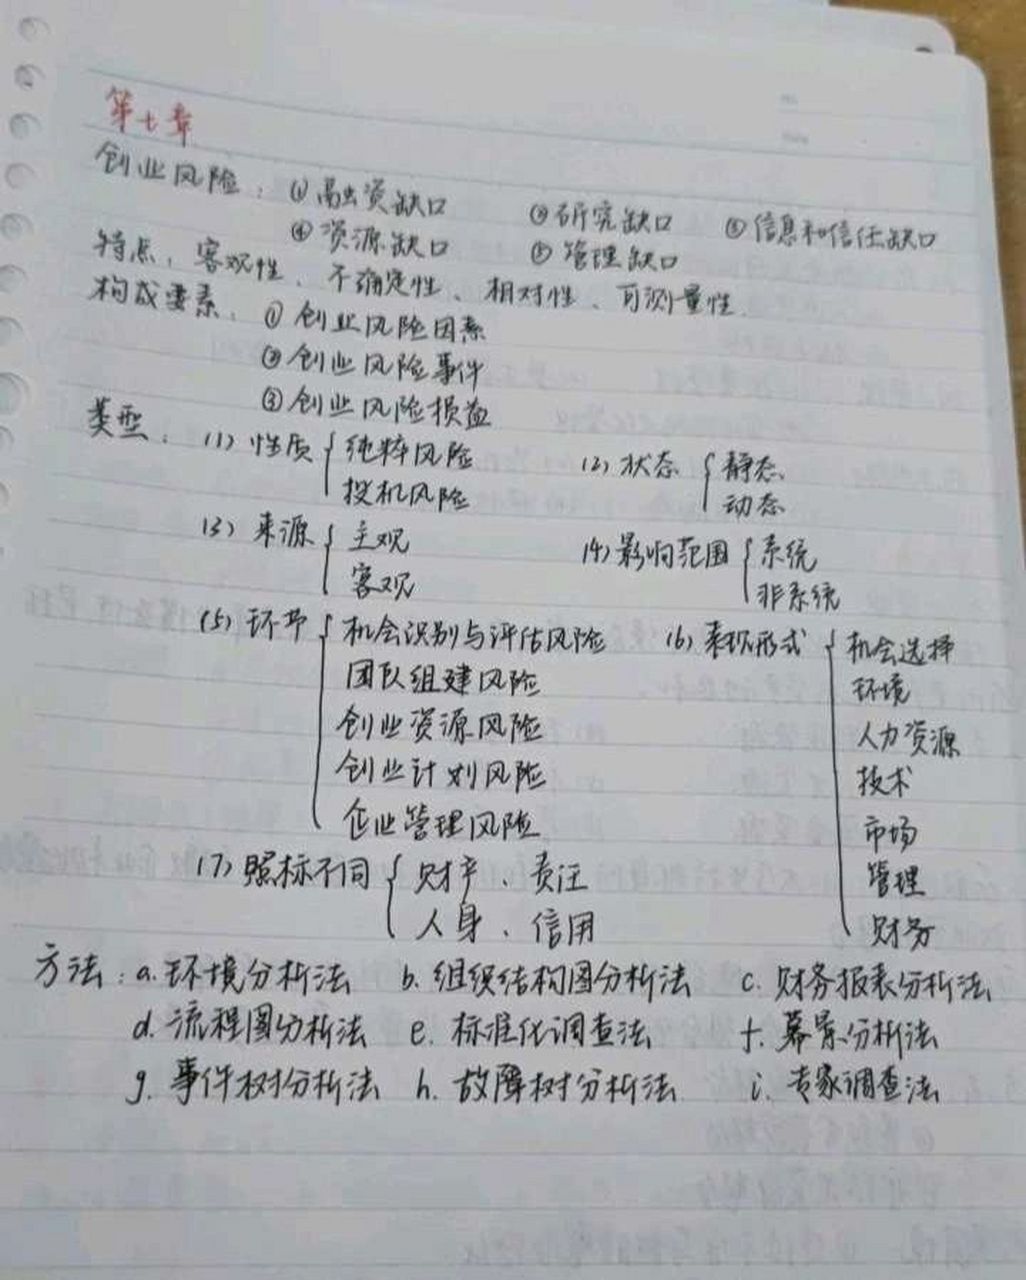 第七章
创业风险：① 融资缺口 ② 研究缺口 ③ 信息和信任缺口
④ 资源缺口 ⑤ 管理缺口
特点：客观性、不确定性、相对性、可测量性
构成要素：① 创业风险因素
② 创业风险事件
③ 创业风险损益
类型：(1) 性质 { 纯粹风险 (2) 状态 { 静态
投机风险 动态
(3) 来源 { 主观 (4) 影响范围 { 系统
客观 非系统
(5) 环节 { 机会识别与评估风险 (6) 表现形式 { 机会选择
团队组建风险 环境
创业资源风险 人力资源
创业计划风险 技术
企业管理风险 市场
(7) 照标不同 { 财产、责任 管理
人身、信用 财务
方法：a. 环境分析法 b. 组织结构图分析法 c. 财务报表分析法
d. 流程图分析法 e. 标准化调查法 f. 幕景分析法
g. 事件树分析法 h. 故障树分析法 i. 专家调查法